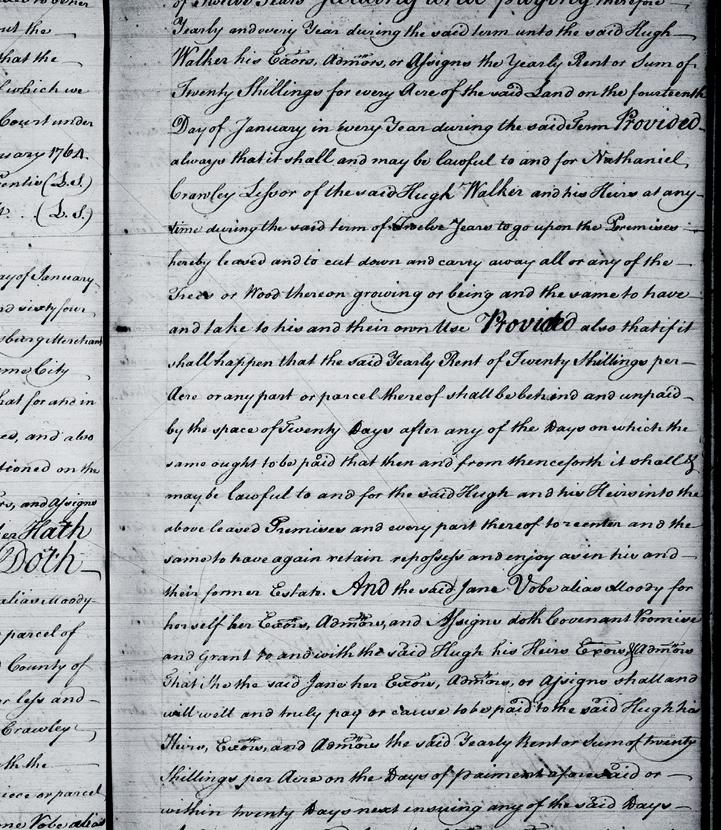 ut the
that the
which we
Court under
uary 1764.
(L.S.)
(L.S.)
ay of January
nd sixty four
sburg Merchant
me City
hat for and in
es, and also
tioned on the
rs, and Assigns
Hath
Doth
alias Moody
parcel of
County of
or less and
Crawley
th the
iece or parcel
ne Vobe alias
of Twelve Years Yielding and paying therefore
Yearly and every Year during the said term unto the said Hugh
Walker his Exors, Admors, or Assigns the Yearly Rent or Sum of
Twenty Shillings for every Acre of the said Land on the fourteenth
Day of January in every Year during the said Term Provided
always that it shall and may be lawful to and for Nathaniel
Crawley Lessor of the said Hugh Walker and his Heirs at any
time during the said term of Twelve Years to go upon the Premises
hereby leased and to cut down and carry away all or any of the
Trees or Wood thereon growing or being and the same to have
and take to his and their own Use Provided also that if it
shall happen that the said Yearly Rent of Twenty Shillings per
Acre or any part or parcel thereof shall be behind and unpaid
by the space of Twenty Days after any of the Days on which the
same ought to be paid that then and from thenceforth it shall &
may be lawful to and for the said Hugh and his Heirs into the
above leased Premises and every part thereof to reenter and the
same to have again retain repossess and enjoy as in his and
their former Estate. And the said Jane Vobe alias Moody for
herself her Exors, Admors, and Assigns doth Covenant Promise
and Grant to and with the said Hugh his Heirs Exors & Admors
That she the said Jane her Exors, Admors, or Assigns shall and
will well and truly pay or cause to be paid to the said Hugh his
Heirs, Exors, and Admors the said Yearly Rent or Sum of twenty
Shillings per Acre on the Days of paiment aforesaid or
within twenty Days next ensuing any of the said Days